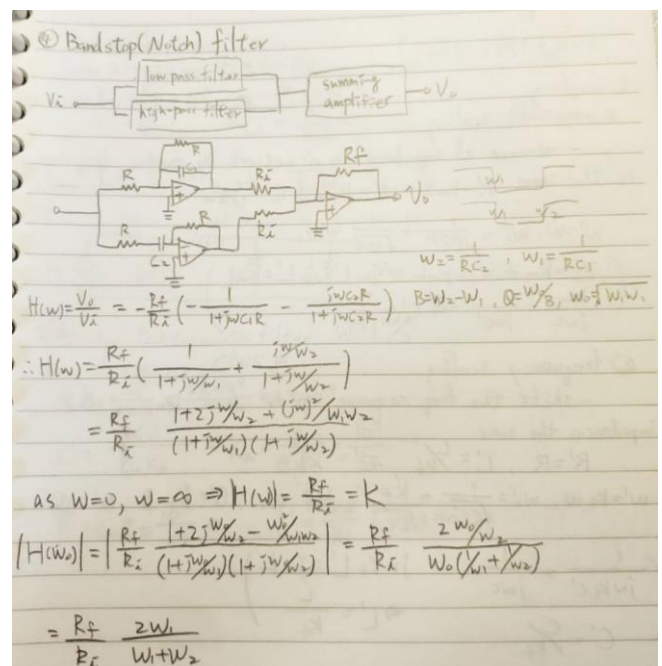 ④ Bandstop(Notch) filter
low pass filter
Vi
high-pass filter
summing
amplifier
Vo
R
C1
R
Ri
Rf
Vo
R
C2
R
Ri
w1
w1 w2
w2=1/RC2 , w1=1/RC1
H(w)=Vo/Vi = -Rf/Ri (-1/(1+jwC1R) - jwC2R/(1+jwC2R)) B=w2-w1 , Q=w0/B , w0=√w1w2
∴ H(w)=Rf/Ri (1/(1+jw/w1) + (jw/w2)/(1+jw/w2))
= Rf/Ri (1+2jw/w2+(jw)²/w1w2)/((1+jw/w1)(1+jw/w2))
as w=0, w=∞ ⇒ |H(w)| = Rf/Ri = K
|H(w0)| = |Rf/Ri (1+2jw0/w2 - w0²/w1w2)/((1+jw0/w1)(1+jw0/w2))| = Rf/Ri (2w0/w2)/(w0(1/w1+1/w2))
= Rf/Ri 2w1/(w1+w2)